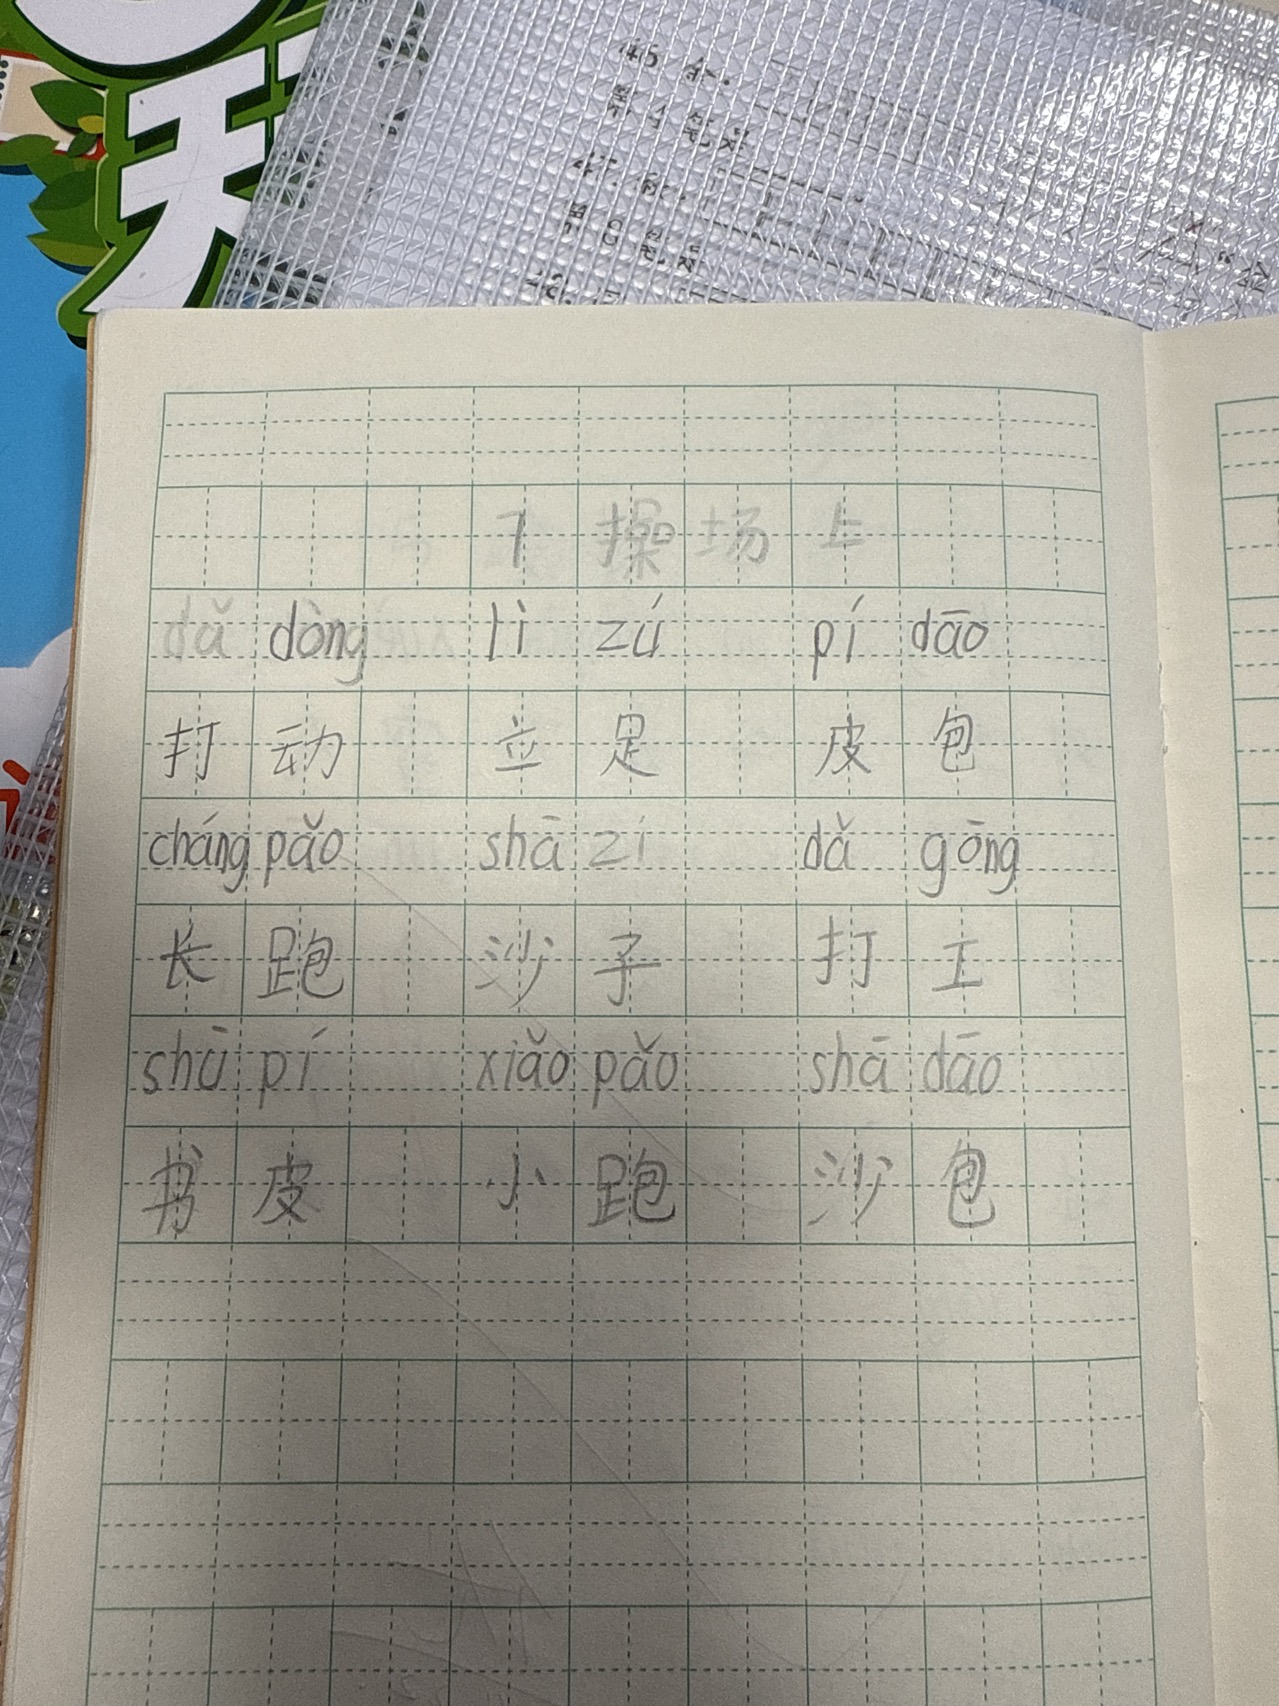 7 操场上
dǎ dòng lì zú pí dāo
打动 立足 皮包
cháng pǎo shā zi dǎ gōng
长跑 沙子 打工
shū pí xiǎo pǎo shā dāo
书皮 小跑 沙包